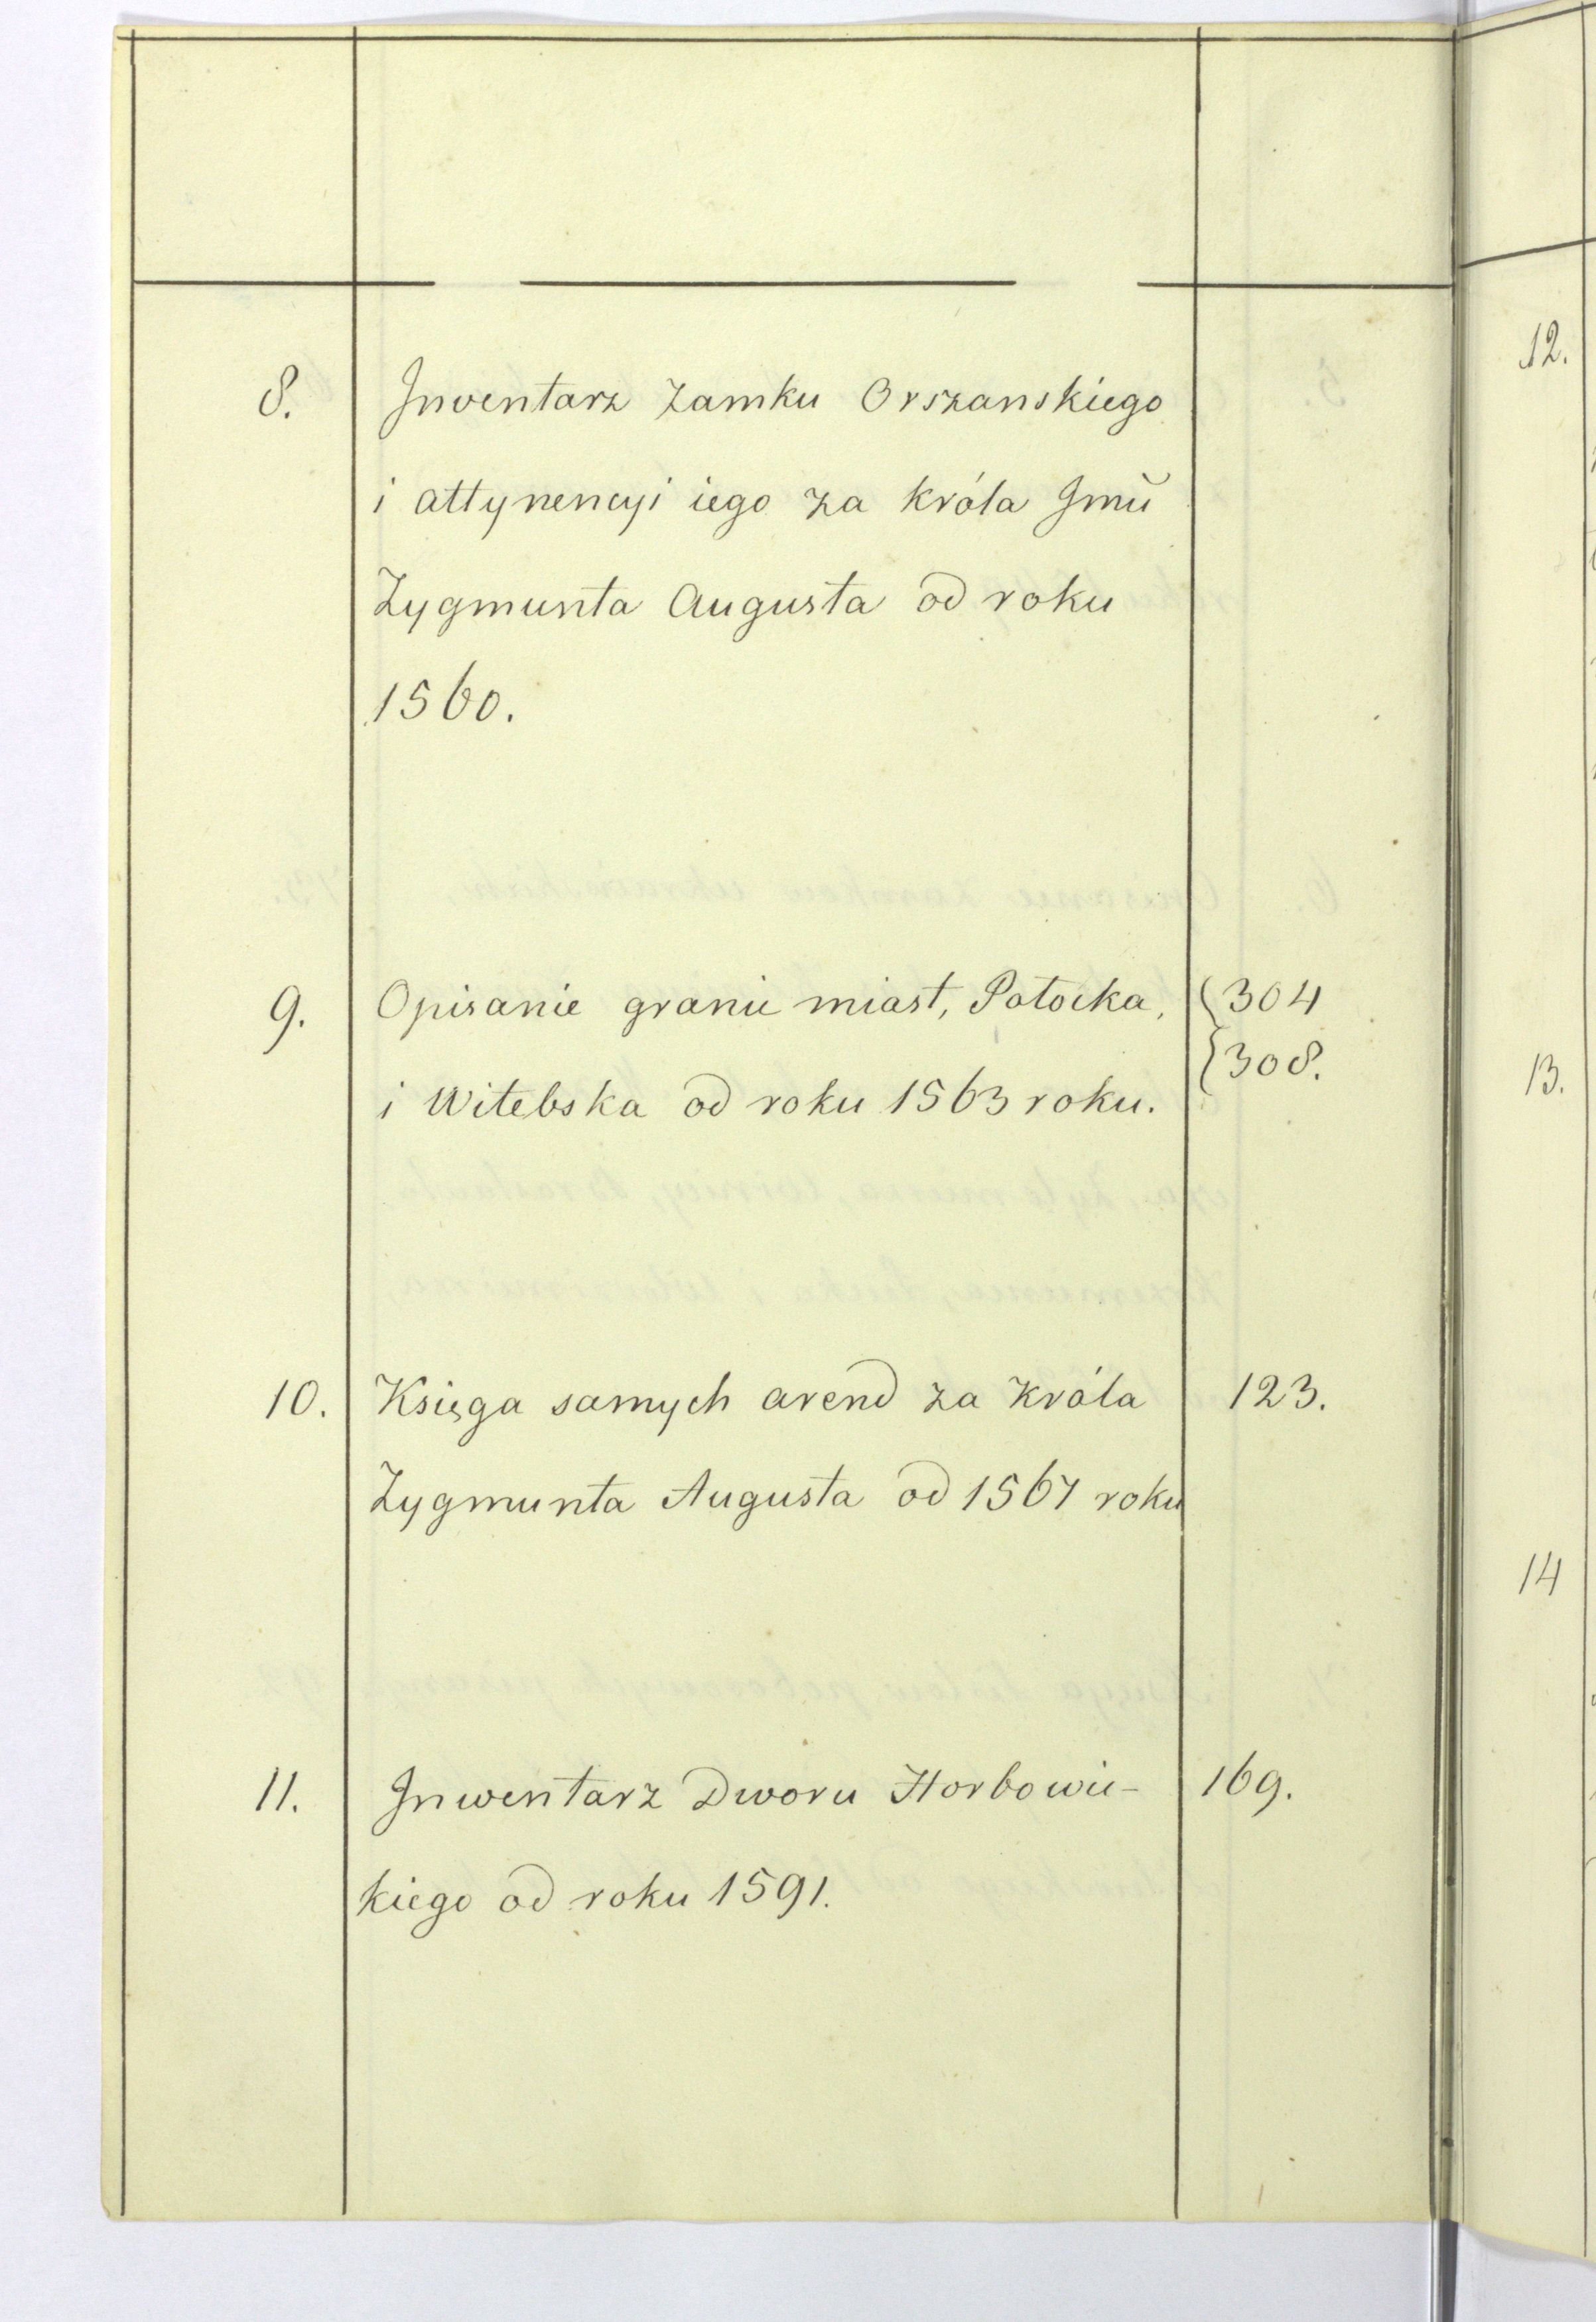 8. Inwentarz Zamku Orszanskiego
i attynencyi iego za króla Jmū
Zygmunta Augusta od roku
1560.
9. Opisanie granic miast, Połocka, 304
308.
i Witebska od roku 1563 roku.
10. Księga samych arend za króla 123.
Zygmunta Augusta od 1567 roku
11. Inwentarz Dworu Horbowic- 169.
kiego od roku 1591.
12.
13.
14